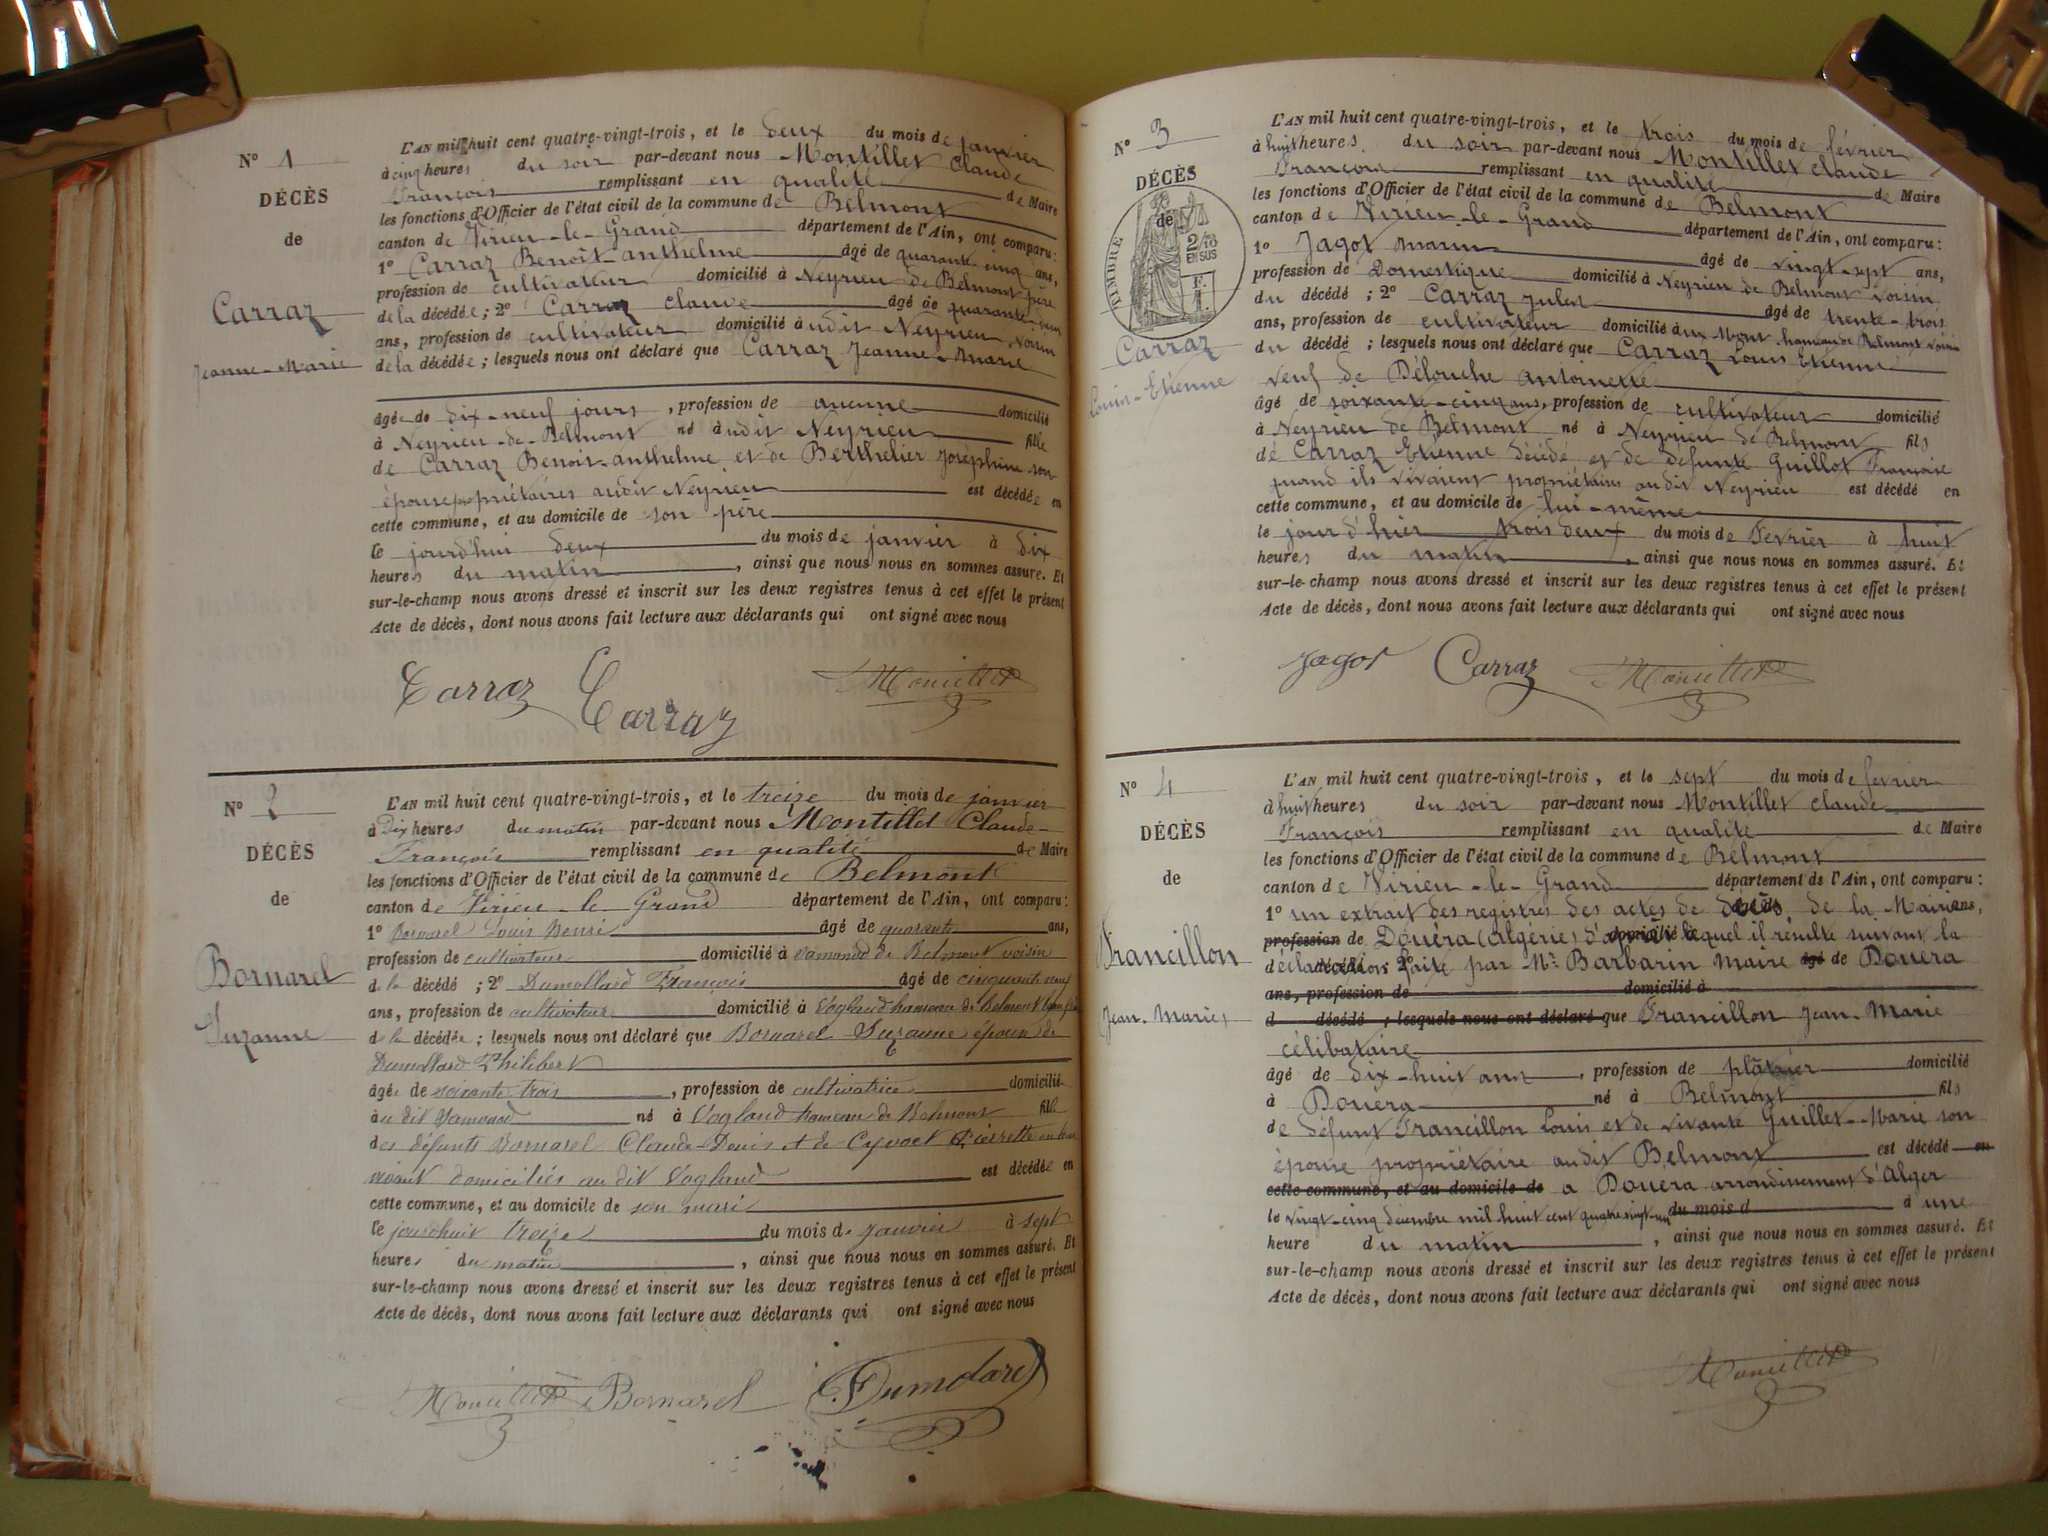 N° 1
DÉCÈS
de
Carraz
Jeanne-Marie
L'AN mil huit cent quatre-vingt-trois, et le deux du mois de janvier
à cinq heures du soir par-devant nous Montillet Claude
François remplissant en qualité de Maire
les fonctions d'Officier de l'état civil de la commune de Belmont
canton de Virieu-le-Grand département de l'Ain, ont comparu:
1° Carraz Benoit-anthelme âgé de quarante-cinq ans,
profession de cultivateur domicilié à Neyrieu de Belmont père
de la décédée; 2° Carraz claude âgé de quarante-deux
ans, profession de cultivateur domicilié à udit Neyrieu, voisin
de la décédée; lesquels nous ont déclaré que Carraz Jeanne-Marie
âgée de dix-neuf jours, profession de aucune domicilié
à Neyrieu-de-Belmont né à udit Neyrieu fille
de Carraz Benoit-anthelme et de Berthelier Joséphine son
épouse propriétaires audit Neyrieu est décédée en
cette commune, et au domicile de son père
le jourd'hui deux du mois de janvier à dix
heures du matin, ainsi que nous nous en sommes assuré. Et
sur-le-champ nous avons dressé et inscrit sur les deux registres tenus à cet effet le présent
Acte de décès, dont nous avons fait lecture aux déclarants qui ont signé avec nous
Carraz Carraz Montillet
N° 2
DÉCÈS
de
Bornarel
Suzanne
L'AN mil huit cent quatre-vingt-trois, et le treize du mois de janvier
à Dix heures du matin par-devant nous Montillet Claude-
François remplissant en qualité de Maire
les fonctions d'Officier de l'état civil de la commune de Belmont
canton de Virieu-le-Grand département de l'Ain, ont comparu:
1° Bornarel Louis Henri âgé de quarante ans,
profession de cultivateur domicilié à Samonod de Belmont voisin
de la décédé; 2° Dumollard François âgé de cinquante neuf
ans, profession de cultivateur domicilié à Vogland hameau de belmont
de la décédée; lesquels nous ont déclaré que Bornarel Suzanne épouse de
Dumollard Philibert
âgée de soixante trois, profession de cultivatrice domicilié
à u dit Samonod né à Vogland hameau de Belmont fille
des défunts Bornarel Claude-Denis et de Cyvoct Pierrette
vivant domiciliés au dit Vogland est décédée en
cette commune, et au domicile de son mari
le jourdhuit treize du mois de janvier à sept
heures du matin, ainsi que nous nous en sommes assuré. Et
sur-le-champ nous avons dressé et inscrit sur les deux registres tenus à cet effet le présent
Acte de décès, dont nous avons fait lecture aux déclarants qui ont signé avec nous
Montillet Bornarel F. Dumolard
N° 3
DÉCÈS
de
TIMBRE
2/10
EN SUS
F.
Carraz
Louis-Etienne
L'AN mil huit cent quatre-vingt-trois, et le trois du mois de février
à huit heures du soir par-devant nous Montillet claude
François remplissant en qualité de Maire
les fonctions d'Officier de l'état civil de la commune de Belmont
canton de Virieu-le-Grand département de l'Ain, ont comparu:
1° Jagot Marin âgé de vingt-sept ans,
profession de Domestique domicilié à Neyrieu de Belmont voisin
du décédé; 2° Carraz Jules âgé de trente-trois
ans, profession de cultivateur domicilié à ux Mont hameau de Belmont voisin
du décédé; lesquels nous ont déclaré que Carraz Louis Etienne
veuf de Délouche antoinette
âgé de soixante-cinq ans, profession de cultivateur domicilié
à Neyrieu de Belmont né à Neyrieu de Belmont fils
de Carraz Etienne décédé et de defunte Guillot Françoise
quand ils vivaient propriétaires audit Neyrieu est décédé en
cette commune, et au domicile de lui-même
le jour d'hier trois deux du mois de Fevrier à huit
heures du matin, ainsi que nous nous en sommes assuré. Et
sur-le-champ nous avons dressé et inscrit sur les deux registres tenus à cet effet le présent
Acte de décès, dont nous avons fait lecture aux déclarants qui ont signé avec nous
Jagot Carraz Montillet
N° 4
DÉCÈS
de
Francillon
Jean-Marie
L'AN mil huit cent quatre-vingt-trois, et le sept du mois de fevrier
à huit heures du soir par-devant nous Montillet claude
François remplissant en qualité de Maire
les fonctions d'Officier de l'état civil de la commune de Belmont
canton de Virieu-le-Grand département de l'Ain, ont comparu:
1° un extrait des registres des actes de décès, de la Mairie ans,
profession de Douéra (Algérie) d'après lequel il résulte suivant la
déclaration faite par Mr Barbarin Maire âgé de Douéra
ans, profession de domicilié à
d décédé; lesquels nous ont déclaré que Francillon Jean-Marie
célibataire
âgé de dix-huit ans, profession de plâtrier domicilié
à Douéra né à Belmont fils
de défunt Francillon Louis et de vivante Guillet-Marie son
épouse propriétaire audit Belmont est décédé en
cette commune, et au domicile de a Douera arrondissement d'Alger
le vingt-cinq décembre mil huit cent quatre vingt-un du mois d à une
heure du matin, ainsi que nous nous en sommes assuré. Et
sur-le-champ nous avons dressé et inscrit sur les deux registres tenus à cet effet le présent
Acte de décès, dont nous avons fait lecture aux déclarants qui ont signé avec nous
Montillet